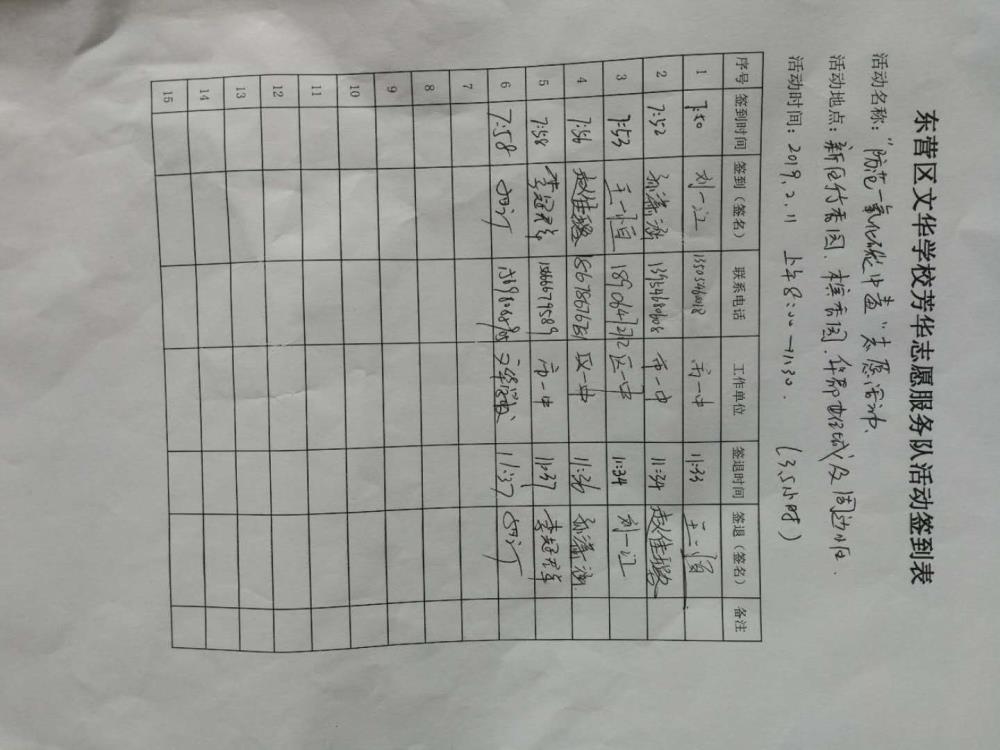 东营区文华学校芳华志愿服务队活动签到表
活动名称："防范一氧化碳中毒"志愿宣讲.
活动地点：新区竹香园. 及周边小区.
活动时间：2019.2.11 上午8:00—11:30. (3.5小时)
序号 签到时间 签到（签名） 联系电话 工作单位 签退时间 签退（签名） 备注
1 7:50 刘一江 市一中 11:33
2 7:52 孙潇涵 13954680608 市一中 11:34 赵佳璇
3 7:53 王一恒 区一中 11:34 刘一江
4 7:56 赵佳璇 18678676751 区一中 11:36 孙潇涵
5 7:58 李冠 15666679589 市一中 11:37 李冠
6 7:58 文华学校 11:37
7
8
9
10
11
12
13
14
15